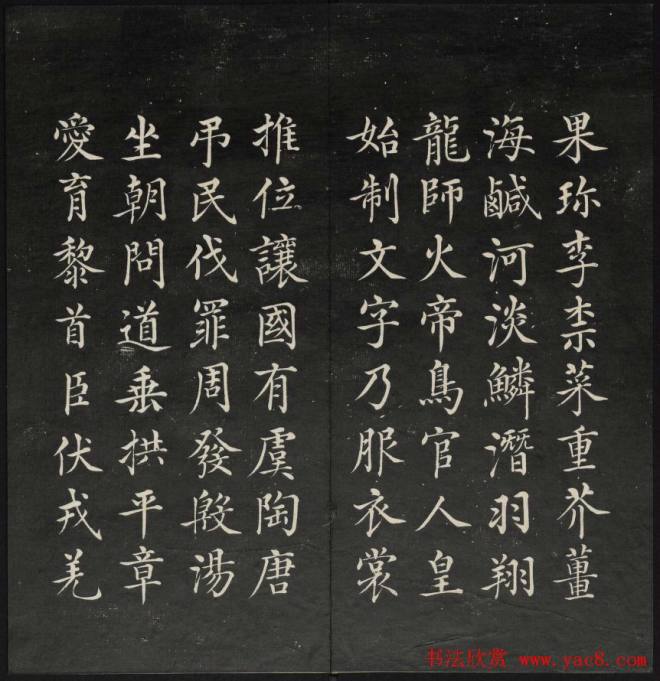 果珎李柰菜重芥薑
海鹹河淡鱗潛羽翔
龍師火帝鳥官人皇
始制文字乃服衣裳
推位讓國有虞陶唐
弔民伐罪周發殷湯
坐朝問道垂拱平章
愛育黎首臣伏戎羌
书法欣赏 www.yac8.com